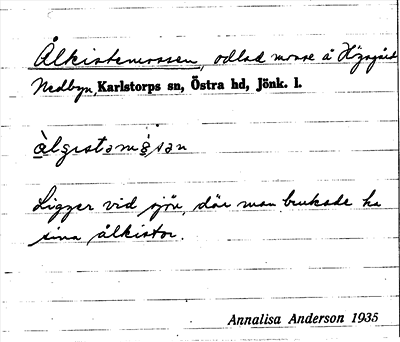 Ålkistemossen, odlad mosse å Högagärde
Nedbyn, Karlstorps sn, Östra hd, Jönk. l.
àlgıstamòsan
Ligger vid sjön, där man brukade ha
sina ålkistor.
Annalisa Anderson 1935